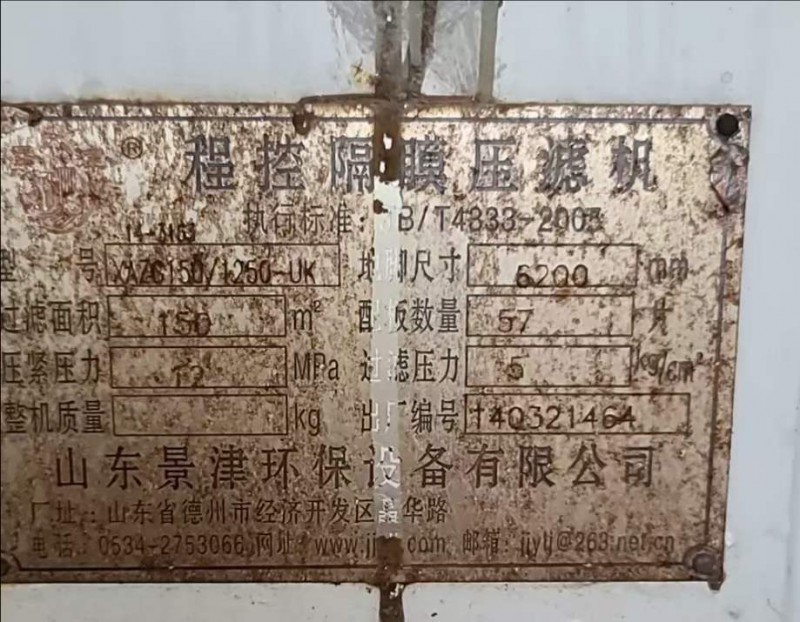 ® 程控隔膜压滤机
执行标准: B/T4333-2005
14-3163
型号 XAZG150/1250-UK 地脚尺寸 6200 mm
过滤面积 150 m² 配板数量 57 片
压紧压力 MPa 过滤压力 5 kg/cm²
整机质量 kg 出厂编号 140321464
山东景津环保设备有限公司
厂址: 山东省德州市经济开发区晶华路
电话: 0534-2753066 网址: www.jj .com 邮箱: jjylj@263.net.cn